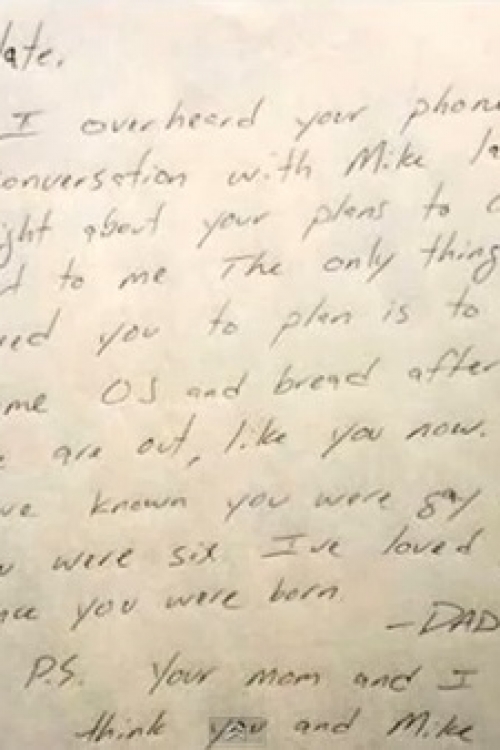 ate,
I overheard your phon
onversation with Mike la
ght about your plans to c
d to me The only thing
ed you to plan is to
me OJ and bread after
e are out, like you now.
ve known you were gay
u were six I've loved
nce you were born.
-DAD
P.S. Your mom and I
think you and Mike